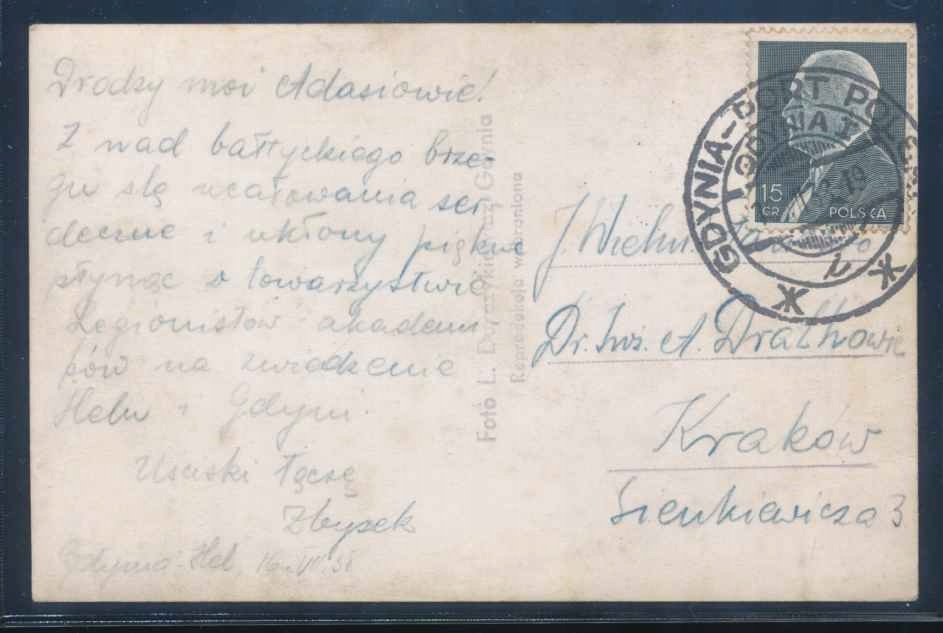 Drodzy moi Adasiowie!
Z nad bałtyckiego brze-
gu ślę ucałowania ser
deczne i ukłony piękne
płynąc w towarzystwie
Legionistów akadem
ków na zwiedzenie
Helu i Gdyni.
Uściski łączę
Zbyszek
Gdynia-Hel 16. VI. 38
Foto L. Gdynia
Reprodukcja wzbroniona
15
GR POLSKA
GDYNIA-PORT POL
GDYNIA 1
19
J. Wielm.
Dr. Inż. A. Drathowie
Kraków
Sienkiewicza 3